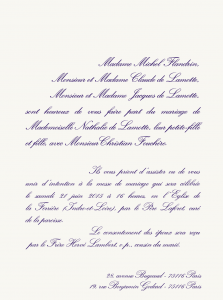 Madame Michel Flandrin,
Monsieur et Madame Claude de Lamotte,
Monsieur et Madame Jacques de Lamotte,
sont heureux de vous faire part du mariage de
Mademoiselle Nathalie de Lamotte, leur petite-fille
et fille, avec Monsieur Christian Fouchère.
Ils vous prient d'assister ou de vous
unir d'intention à la messe de mariage qui sera célébrée
le samedi 21 juin 2013 à 16 heures en l'Église de
la Ferrière (Indre-et-Loire), par le Père Lefort, curé
de la paroisse.
Le consentement des époux sera reçu
par le Frère Hervé Lambert, o.p., cousin du marié.
28, avenue Bugeaud - 75116 Paris
19, rue Benjamin Godard - 75116 Paris